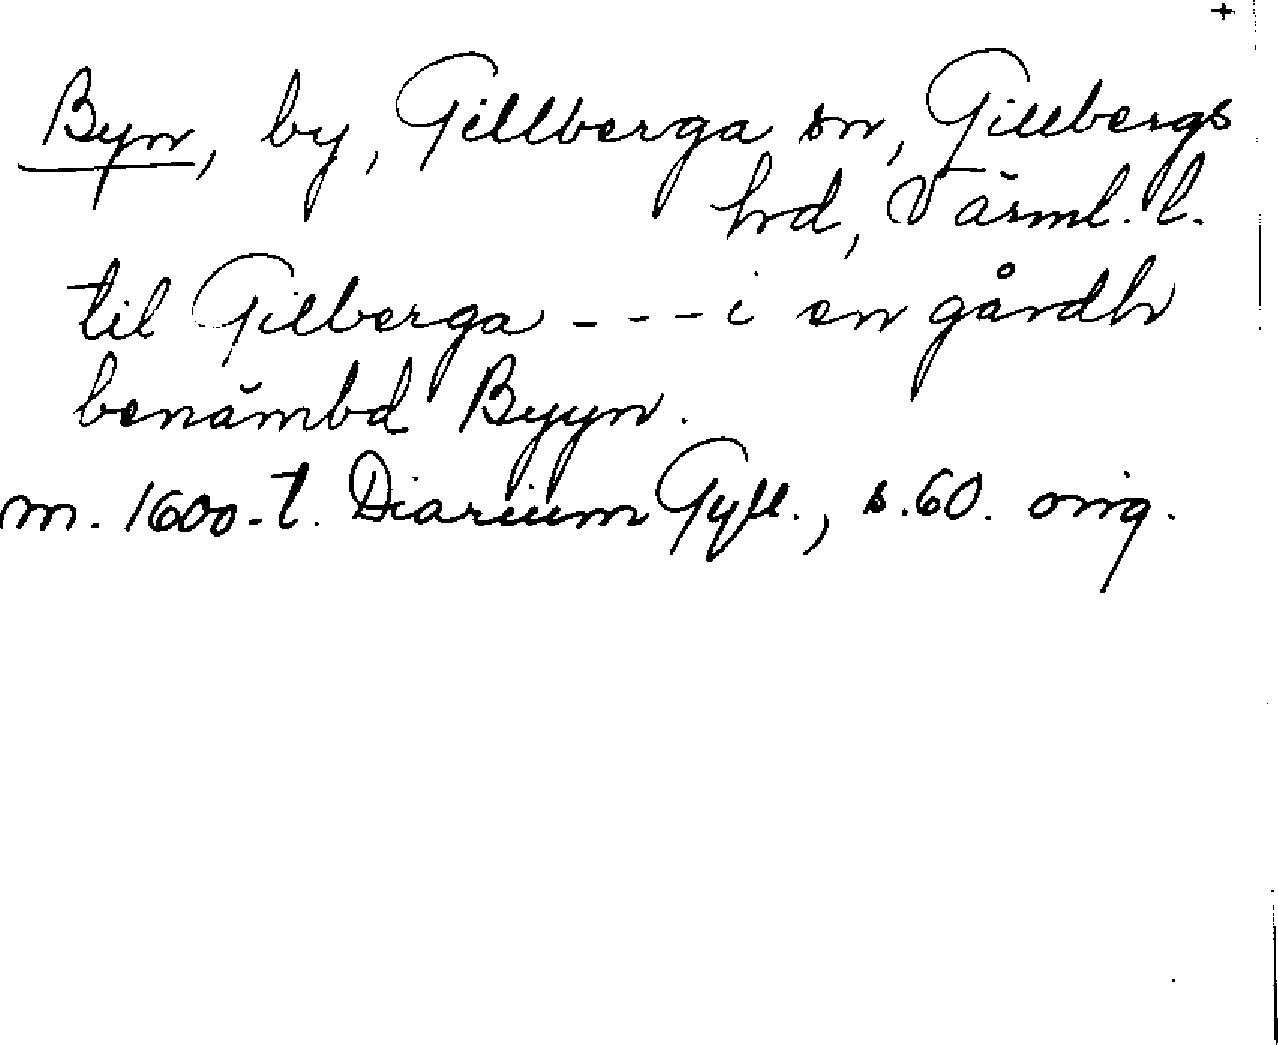 +
Byn, by, Gillberga sn, Gillbergs
hd, Värml. l.
til Gilberga - - - i en gårdh
benämbd Byyn.
m. 1600-t. Diarium Gyll., s. 60. orig.